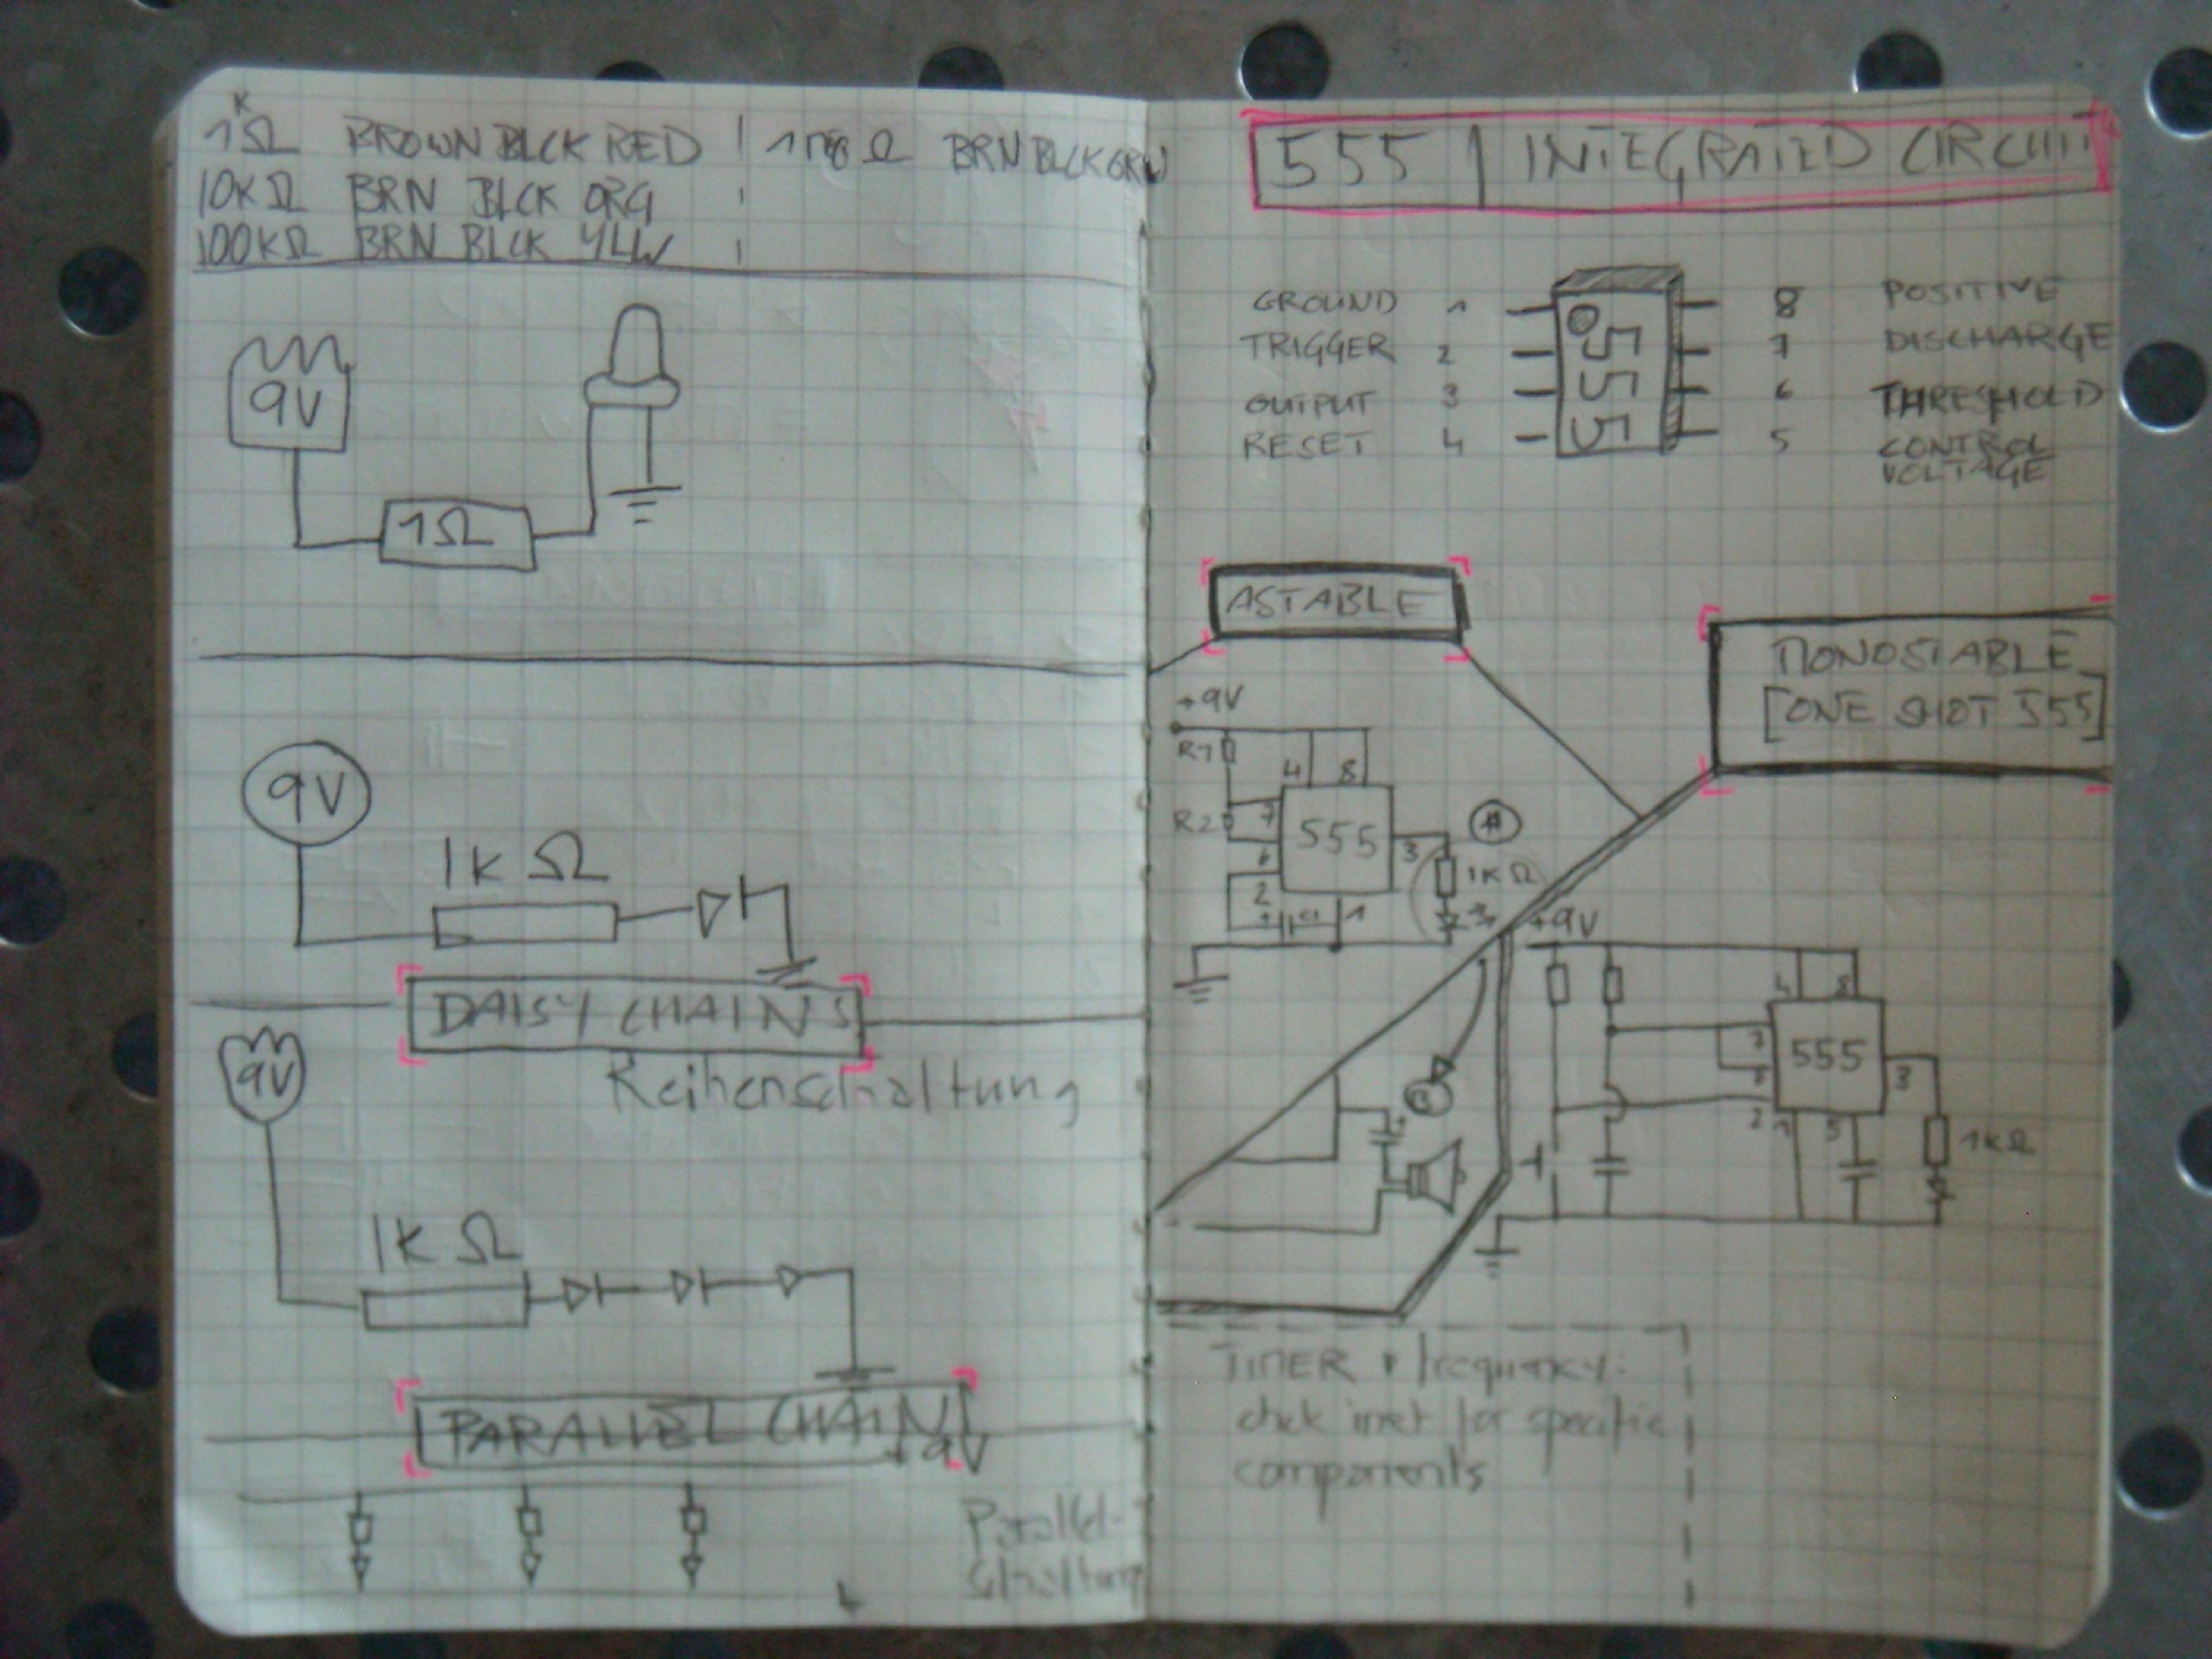 1KΩ BROWN BLCK RED | 1 Ω BRN BLCK GRN
10KΩ BRN BLCK ORG
100KΩ BRN BLCK YLLW
9V
1Ω
9V
1K Ω
DAISY CHAINS
Reihenschaltung
9V
1K Ω
PARALLEL CHAIN
+9V
Parallel-
schaltung
555 | INTEGRATED CIRCUIT
GROUND 1 555 8 POSITIVE
TRIGGER 2 7 DISCHARGE
OUTPUT 3 6 THRESHOLD
RESET 4 5 CONTROL
VOLTAGE
ASTABLE
+9V
R1
4 8
R2 7 555
6 3 1KΩ
2
+ 1
MONOSTABLE
[ONE SHOT 555]
+9V
4 8
7 555
6 3
2 1 5 1KΩ
+
TIMER frequency:
chck inet for specific
components